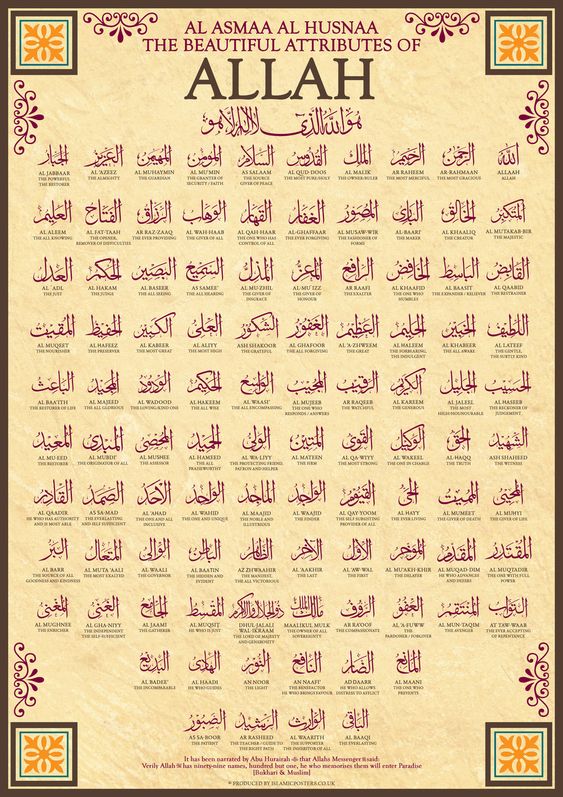 AL ASMAA AL HUSNAA
THE BEAUTIFUL ATTRIBUTES OF
ALLAH
هو الله الذي لا اله الا هو
الله
ALLAAH
ALLAH
الرحمن
AR-RAHMAN
THE MOST GRACIOUS
الرحيم
AR RAHEEM
THE MOST MERCIFUL
الملك
AL MALIK
THE OWNER/RULER
القدوس
AL QUD-DOOS
THE MOST PURE/HOLY
السلام
AS SALAAM
THE SOURCE
GIVER OF PEACE
المؤمن
AL MU'MIN
THE GRANTER OF
SECURITY / FAITH
المهيمن
AL MUHAYMIN
THE GUARDIAN
العزيز
AL 'AZEEZ
THE ALMIGHTY
الجبار
AL JABBAAR
THE POWERFUL
THE RESTORER
المتكبر
AL MUTAKAB-BIR
THE MAJESTIC
الخالق
AL KHAALIQ
THE CREATOR
البارئ
AL-BAARI'
THE MAKER
المصور
AL MUSAW-WIR
THE FASHIONER OF
FORMS
الغفار
AL-GHAFFAAR
THE EVER FORGIVING
القهار
AL QAH-HAAR
THE ONE WHO HAS
CONTROL OF ALL
الوهاب
AL WAH-HAAB
THE GIVER OF ALL
الرزاق
AR RAZ-ZAAQ
THE EVER PROVIDING
الفتاح
AL FAT-TAAH
THE OPENER,
REMOVER OF DIFFICULTIES
العليم
AL ALEEM
THE ALL KNOWING
القابض
AL QAABID
THE RESTRAINER
الباسط
AL BAASIT
THE EXPANDER / RELIEVER
الخافض
AL KHAAFID
THE ONE WHO
HUMBLES
الرافع
AR RAAFI
THE EXALTER
المعز
AL-MU'IZZ
THE GIVER OF
HONOUR
المذل
AL MU-ZHIL
THE GIVER OF
DISGRACE
السميع
AS SAMEE'
THE ALL HEARING
البصير
AL BASEER
THE ALL SEEING
الحكم
AL HAKAM
THE JUDGE
العدل
AL 'ADL
THE JUST
اللطيف
AL LATEEF
THE GENTLE,
THE SUBTLY KIND
الخبير
AL KHABEER
THE ALL AWARE
الحليم
AL HALEEM
THE FORBEARING,
THE INDULGENT
العظيم
AL 'A-ZHWEEM
THE GREAT
الغفور
AL GHAFOOR
THE ALL FORGIVING
الشكور
ASH SHAKOOR
THE GRATEFUL
العلي
AL ALIYY
THE MOST HIGH
الكبير
AL KABEER
THE MOST GREAT
الحفيظ
AL HAFEEZ
THE PRESERVER
المقيت
AL MUQEET
THE NOURISHER
الحسيب
AL HASEEB
THE RECKONER OF
JUDGEMENT
الجليل
AL JALEEL
THE MOST
HIGH/HONOURABLE
الكريم
AL KAREEM
THE GENEROUS
الرقيب
AR RAQEEB
THE WATCHFUL
المجيب
AL MUJEEB
THE ONE WHO
RESPONDS / ANSWERS
الواسع
AL WAASI'
THE ALL ENCOMPASSING
الحكيم
AL HAKEEM
THE ALL WISE
الودود
AL WADOOD
THE LOVING/KIND ONE
المجيد
AL MAJEED
THE ALL GLORIOUS
الباعث
AL BAATTH
THE RESTORER OF LIFE
الشهيد
ASH SHAHEED
THE WITNESS
الحق
AL-HAQQ
THE TRUTH
الوكيل
AL WAKEEL
THE ONE IN CHARGE
القوي
AL QA-WIYY
THE MOST STRONG
المتين
AL MATEEN
THE FIRM
الولي
AL WA-LIYY
THE PROTECTING FRIEND,
PATRON AND HELPER
الحميد
AL HAMEED
THE ALL
PRAISEWORTHY
المحصي
AL MUHSEE
THE ASSESSOR
المبدئ
AL MUBDI'
THE ORIGINATOR OF ALL
المعيد
AL MU-EED
THE RESTORER
المحيي
AL MUHYI
THE GIVER OF LIFE
المميت
AL MUMEET
THE GIVER OF DEATH
الحي
AL HAYY
THE EVER LIVING
القيوم
AL QAY-YOOM
THE SELF SUBSISTING
PROVIDER OF ALL
الواجد
AL WAAJID
THE FINDER
الماجد
AL MAAJID
THE NOBLE AND
ILLUSTRIOUS
الواحد
AL WAHID
THE ONE AND UNIQUE
الاحد
AL 'AHAD
THE ONE AND ALL
INCLUSIVE
الصمد
AS SA-MAD
THE EVERLASTING
AND SELF SUFFICIENT
القادر
AL QAADIR
HE WHO HAS AUTHORITY
AND IS MOST ABLE
المقتدر
AL MUQTADIR
THE ONE WITH FULL
POWER
المقدم
AL MUQAD-DIM
HE WHO ADVANCES
AND DEFERS
المؤخر
AL MU'AKH-KHER
THE DELAYER
الأول
AL 'AW-WAL
THE FIRST
الآخر
AL 'AAKHIR
THE LAST
الظاهر
AZ ZHWAAHIR
THE MANIFEST,
THE ALL VICTORIOUS
الباطن
AL BAATIN
THE HIDDEN AND
EVIDENT
الوالي
AL WAALI
THE GOVERNOR
المتعال
AL MUTA 'AALI
THE MOST EXALTED
البر
AL BARR
THE SOURCE OF ALL
GOODNESS AND KINDNESS
التواب
AT TAW-WAAB
THE EVER ACCEPTING
OF REPENTENCE
المنتقم
AL MUN-TAQIM
THE AVENGER
العفو
AL 'A-FUWW
THE
PARDONER / FORGIVER
الرؤف
AR RA'OOF
THE COMPASSIONATE
مالك الملك
MAALIKUL MULK
THE OWNER OF ALL
SOVEREIGNTY
ذوالجلال والاكرام
DHUL-JALALI
WAL IKRAAM
THE LORD OF MAJESTY
AND GENEROSITY
المقسط
AL MUQSIT
HE WHO IS JUST
الجامع
AL JAAMI
THE GATHERER
الغني
AL GHA-NIYY
THE INDEPENDENT
THE SELF-SUFFICIENT
المغني
AL MUGHNEE
THE ENRICHER
المانع
AL MAANI
THE ONE WHO
PREVENTS
الضار
AD DAARR
HE WHO ALLOWS
DISTRESS TO AFFLICT
النافع
AN NAAFI'
THE BENEFACTOR
HE WHO BRINGS FAVOUR
النور
AN NOOR
THE LIGHT
الهادي
AL HAADI
HE WHO GUIDES
البديع
AL BADEE'
THE INCOMPARABLE
الباقي
AL BAAQI
EVERLASTING
الوارث
AL WAARITH
THE SUPPORTER
THE INHERITOR OF ALL
الرشيد
AR RASHEED
THE TEACHER / GUIDE TO
THE RIGHT PATH
الصبور
AS SA-BOOR
THE PATIENT
It has been narrated by Abu Hurairah that Allahs Messenger said:
Verily Allah has ninety-nine names, hundred but one, he who memorises them will enter Paradise
[Bukhari & Muslim]
® PRODUCED BY ISLAMICPOSTERS.CO.UK